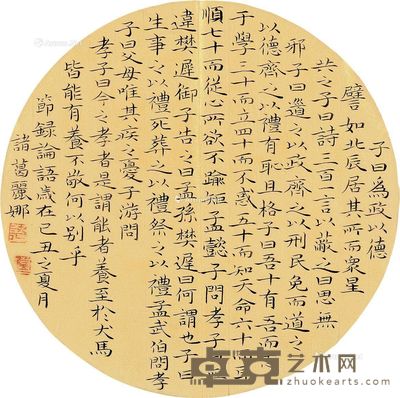 子曰為政以德
譬如北辰居其所而眾星
共之子曰詩三百一言以蔽之曰思無
邪子曰道之以政齊之以刑民免而道之
以德齊之以禮有恥且格子曰吾十有吾而
于學三十而立四十而不惑五十而知天命六十
順七十而從心所欲不踰矩孟懿子問孝子
違樊遲御子告之曰孟孫樊遲曰何謂也子曰
生事之以禮死葬之以禮祭之以禮孟武伯問孝
子曰父母唯其疾之憂子游問
孝子曰今之孝者是謂能者養至於犬馬
皆能有養不敬何以別乎
節錄論語歲在己丑之夏月
諸葛麗娜
卓克艺术网
zhuokearts.com